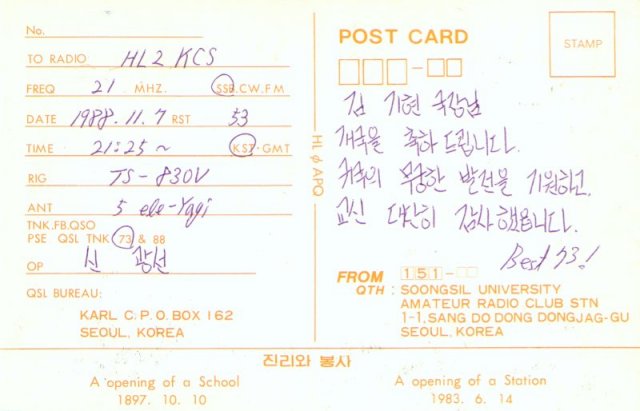 No.
TO RADIO HL2 KCS
FREQ 21 MHZ. SSB.CW.FM
DATE 1988. 11. 7 RST 53
TIME 21:25 ~ KST·GMT
RIG TS-830V
ANT 5 ele-Yagi
TNK.FB.QSO
PSE QSL TNK 73 & 88
OP 신 광선
QSL BUREAU:
KARL C.P.O.BOX 162
SEOUL, KOREA
HL ø APQ
POST CARD
STAMP
김 기현 국장님
개국을 축하 드립니다.
귀국의 무궁한 발전을 기원하고
교신 대단히 감사했읍니다.
Best 73!
FROM 151-
QTH : SOONGSIL UNIVERSITY
AMATEUR RADIO CLUB STN
1-1, SANG DO DONG DONGJAG-GU
SEOUL, KOREA
진리와 봉사
A opening of a School
1897. 10. 10
A opening of a Station
1983. 6. 14